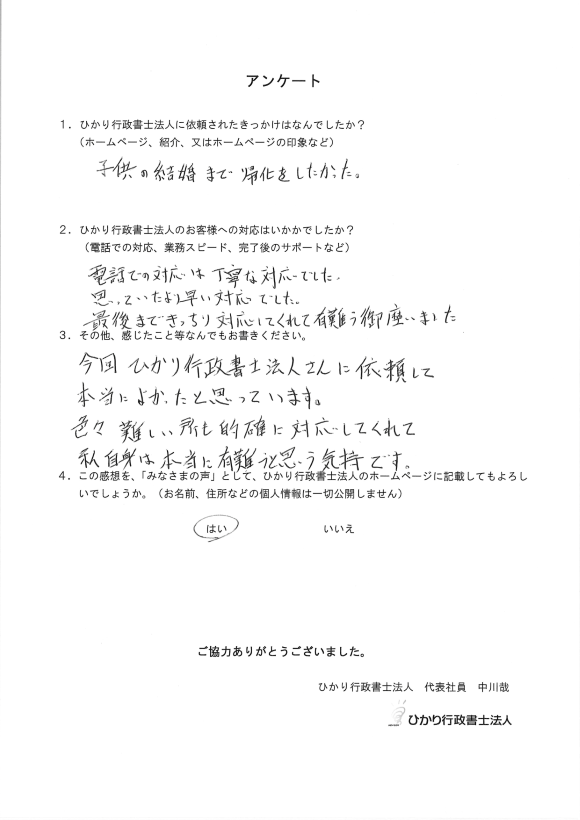 アンケート
1．ひかり行政書士法人に依頼されたきっかけはなんでしたか？
（ホームページ、紹介、又はホームページの印象など）
子供の結婚まで帰化をしたかった。
2．ひかり行政書士法人のお客様への対応はいかかでしたか？
（電話での対応、業務スピード、完了後のサポートなど）
電話での対応は丁寧な対応でした。
思っていたより早い対応でした。
最後まできっちり対応してくれて有難う御座いました
3．その他、感じたこと等なんでもお書きください。
今回ひかり行政書士法人さんに依頼して
本当によかったと思っています。
色々難しい所も的確に対応してくれて
私自身は本当に有難うと思う気持です。
4．この感想を、「みなさまの声」として、ひかり行政書士法人のホームページに記載してもよろし
いでしょうか。（お名前、住所などの個人情報は一切公開しません）
はい　いいえ
ご協力ありがとうございました。
ひかり行政書士法人　代表社員　中川哉
ひかり行政書士法人